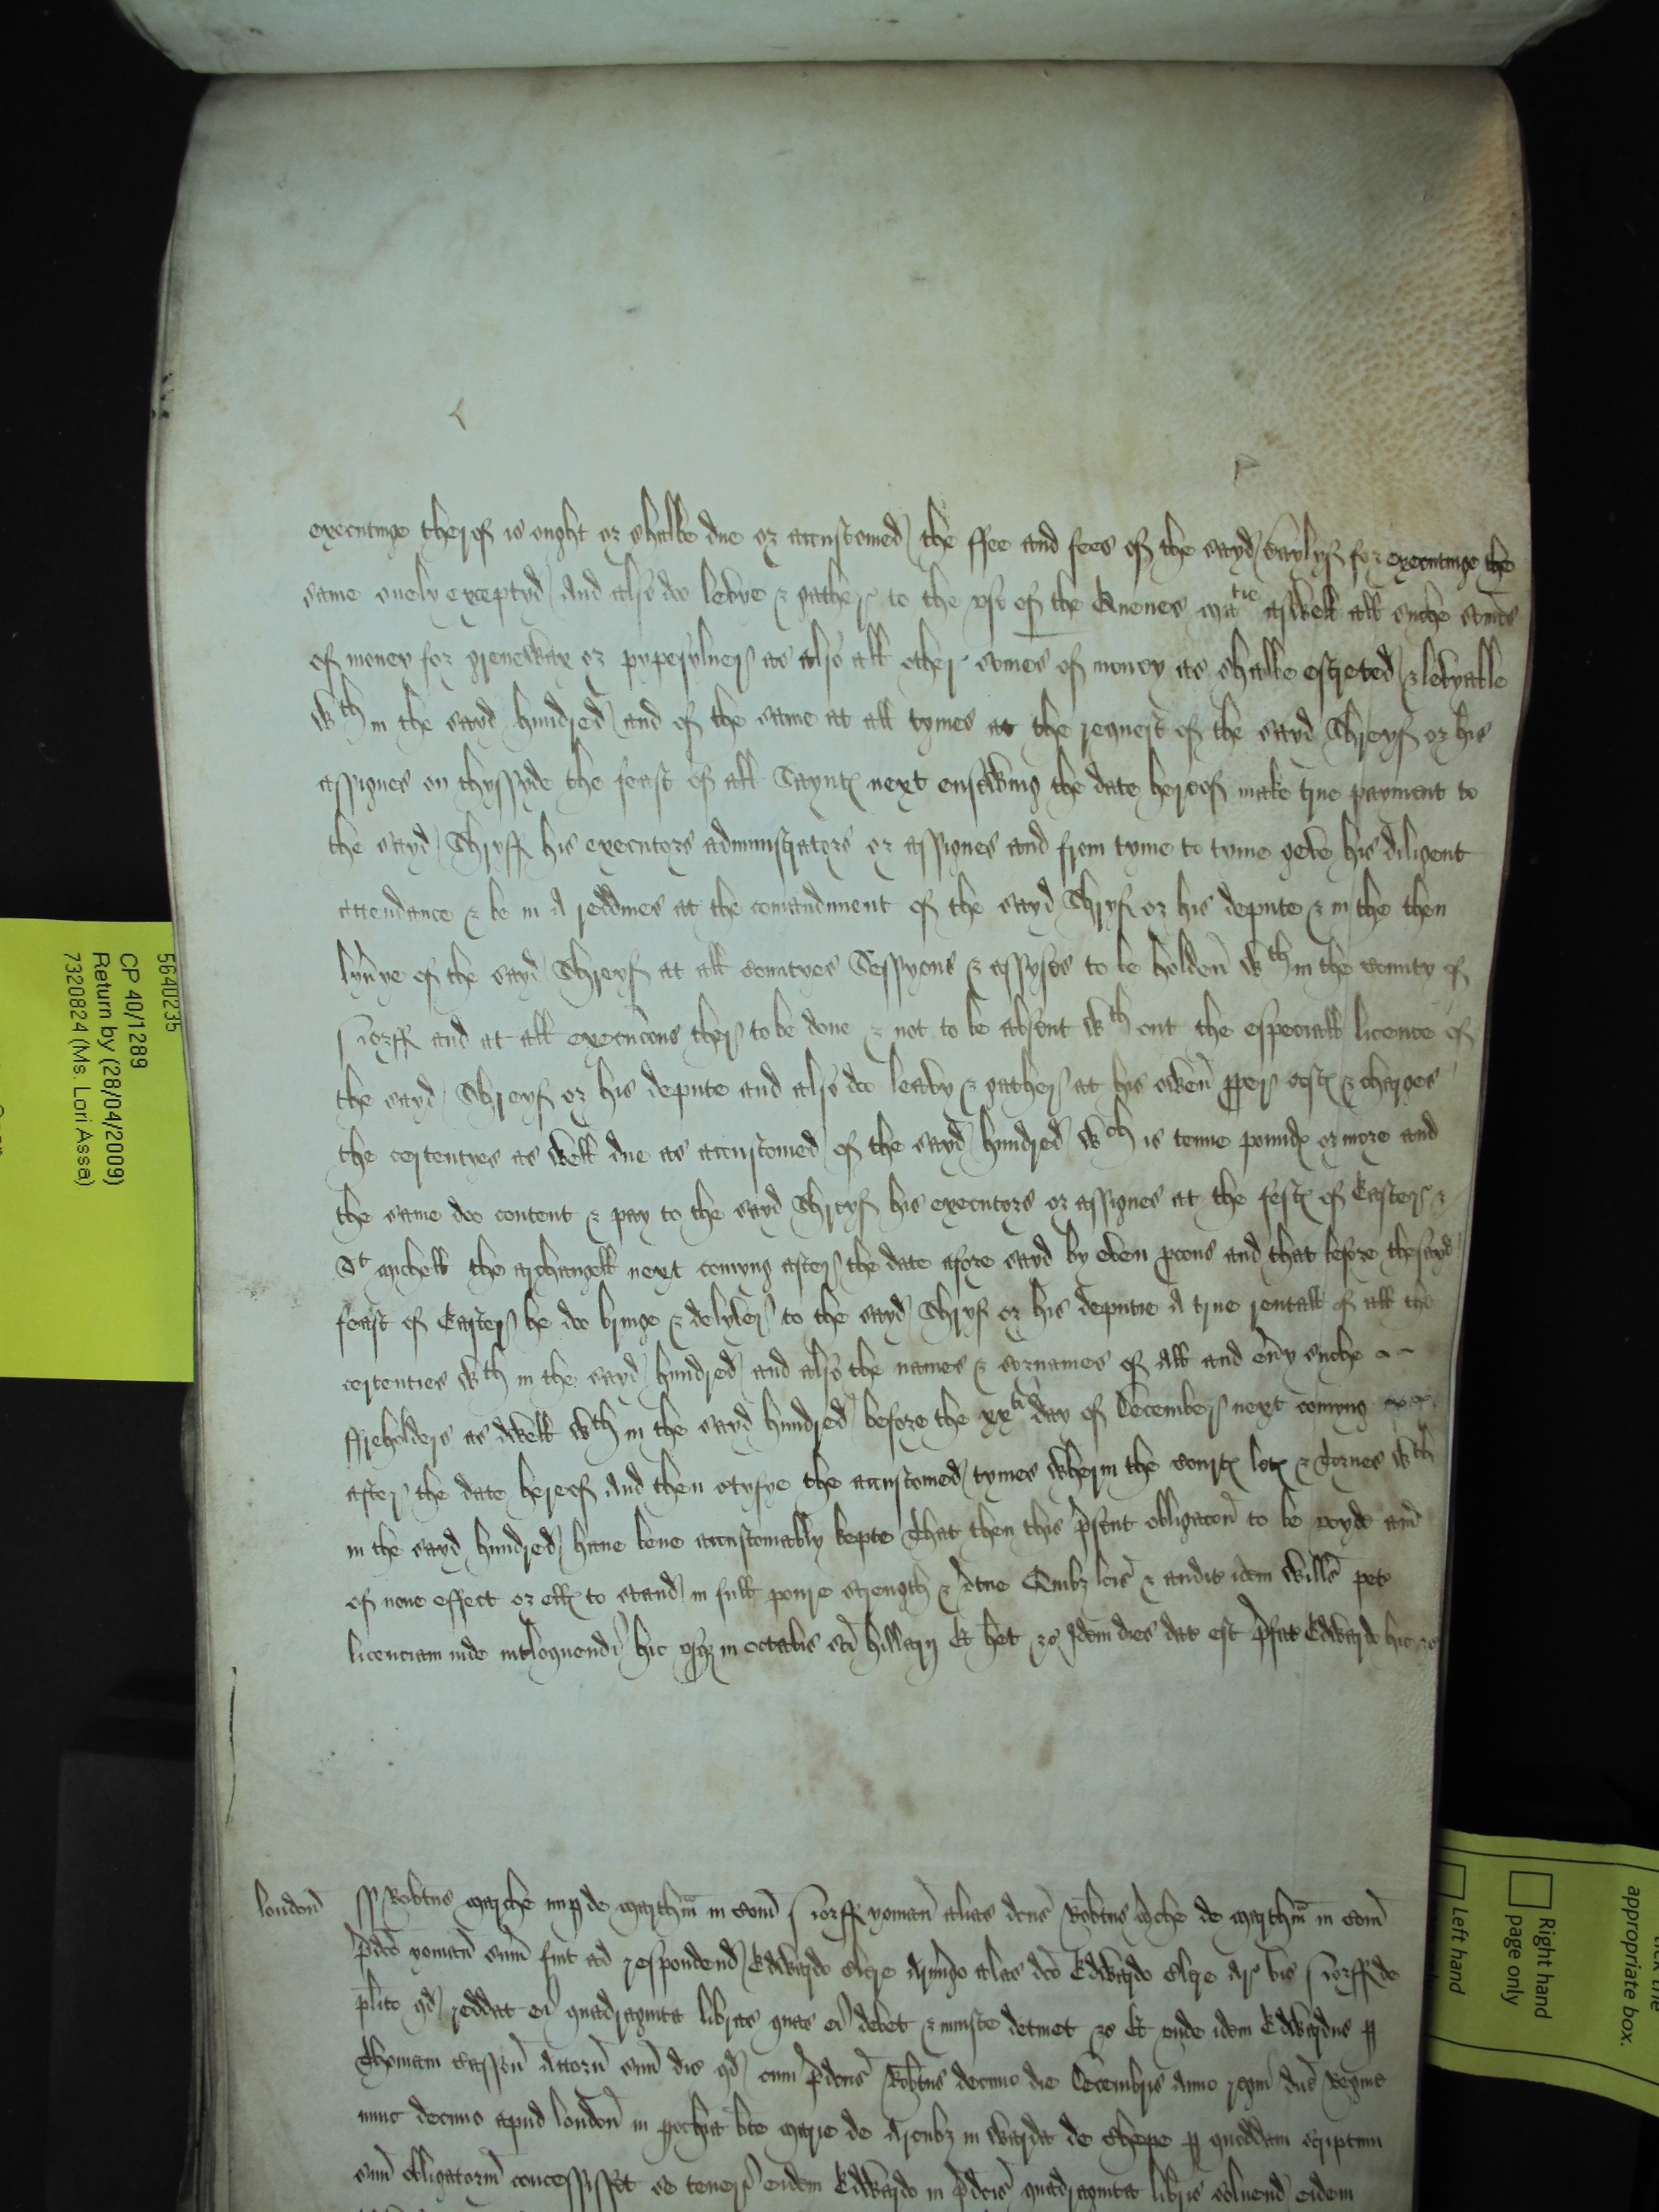 executinge therof is ought or shalbe due or accustomed the ffee and fees of the sayd baylyf for executinge the
same onely exceptyd And also doo levye & gather to the use of the Quenes matie aswell all suche somes
of money for grenewax or pypesylver as also all other somes of money as shalbe estreted & levyable
wth in the sayd hundred and of the same at all tymes at the request of the sayd Shreyf or his
assignes on thyssyde the feast of all Saynts next ensewing the date hereof make true payment to
the sayd Shryff his executors administrators or assignes and from tyme to tyme geve his diligent
attendance & be in A reddines at the comandment of the sayd Shryf or his depute & in the then
lyvrye of the sayd Shreyf at all countyes Sessyons & assyses to be holden wth in the county of
Norff and at all execucons ther to be done & not to be absent wth out the especiall licence of
the sayd Shreyf or his depute and also doo leavy & gather at his owen pper costs & charges
the certentyes as well due as accustomed of the sayd hundred wch is tenne pounds or more and
the same doo content & pay to the sayd Shreyf his executors or assignes at the fests of Easter &
St mychell the archangell next comyng after the date afore sayd by even porcons and that before the sayd
feast of Easter he doo bringe & delyver to the sayd Shryf or his deputie A true rentall of all the
certenties wth in the sayd hundred and also the names & sornames of All and every suche
ffreholders as dwell wth in the sayd hundred before the xxti day of December next comyng
after the date hereof And then certyfye the accustomed tymes wherin the courts lets & tornes wth
in the sayd hundred have bene accustomably kepte That then this psent obligacon to be voyde and
of none effect or ells to stand in full powre strength & vertue Quibz lcis & auditis idem Wills pet
licenciam inde intloquendi hic usqz in octabis sci hillarij Et het &c Idem dies dat est pfat Edwardo hic &c
London ss Robtus marche nup de marthm in com Norff yoman alias dcus Robtus mche de marthm in com
pdco yoman sum fuit ad respondend Edwardo Clere Armigo alias dco Edwardo Clere Ar vic Norff de
plito qd reddat ei quadraginta libras quas ei debet & iniuste detinet &c Et unde idem Edwardus p
Thomam Attorn suu dic qd cum pdcus Robtus decimo die Decembris Anno regni dne Regine
nunc decimo apud london in pochia bte marie de Arcubz in warda de Chepe p quoddam scriptum
suu obligatoriu concessisset se teneri eidem Edwardo in pdcis quadraginta libris solvend eidem
5640235
CP 40/1289
Return by (28/04/2009)
7320824 (Ms. Lori Assa)
appropriate box.
Right hand
page only
Left hand